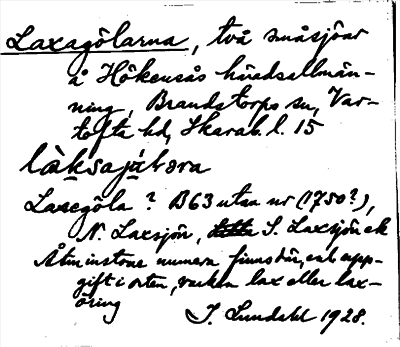 Laxagölarna, två småsjöar
å Hökensås häradsallmän-
ning, Brandstorps sn, Var-
tofta hd, Skarab. l. 15
làksajɷ̀ḷɔra
Laxegöla? B63 utan nr (1750?),
N. Laxsjön, S. Laxsjön ek
Åtminstone numera finns där, enl. upp-
gift i orten, varken lax eller lax-
öring
I. Lundahl 1928.